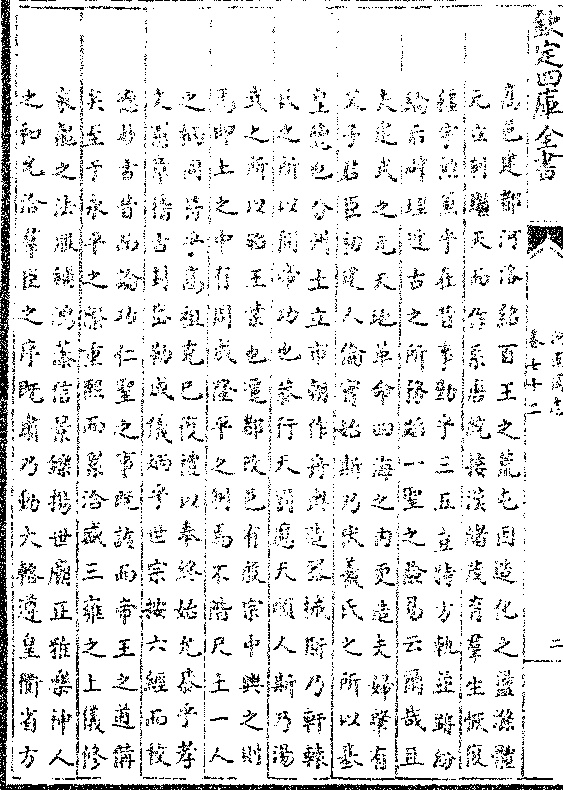 欽定四庫全書
河南通志
卷七十二
二
高邑建都河洛紹百王之荒屯因造化之盪滌體
元立制繼天而作系唐統接漢緒茂育羣生恢復
疆宇勲兼乎在昔事勤乎三五豈特方軌並跡紛
綸后辟理近古之所務蹈一聖之險易云爾哉且
夫建武之元天地革命四海之內更造夫婦肇有
父子君臣初建人倫寔始斯乃伏羲氏之所以基
皇德也分州土立市朝作舟輿造器械斯乃軒轅
氏之所以開帝功也龔行天罰應天順人斯乃湯
武之所以昭王業也遷都改邑有殷宗中興之則
焉即土之中有周成隆平之制焉不階尺土一人
之柄同符乎高祖克己復禮以奉終始允恭乎孝
文憲章稽古封岱勒成儀炳乎世宗按六經而校
德眇古昔而論功仁聖之事既該而帝王之道備
矣至于永平之際重熙而累洽盛三雍之上儀修
衮龍之法服鋪鴻藻信景鑠揚世廟正雅樂神人
之和允洽羣臣之序既肅乃動大輅遵皇衢省方